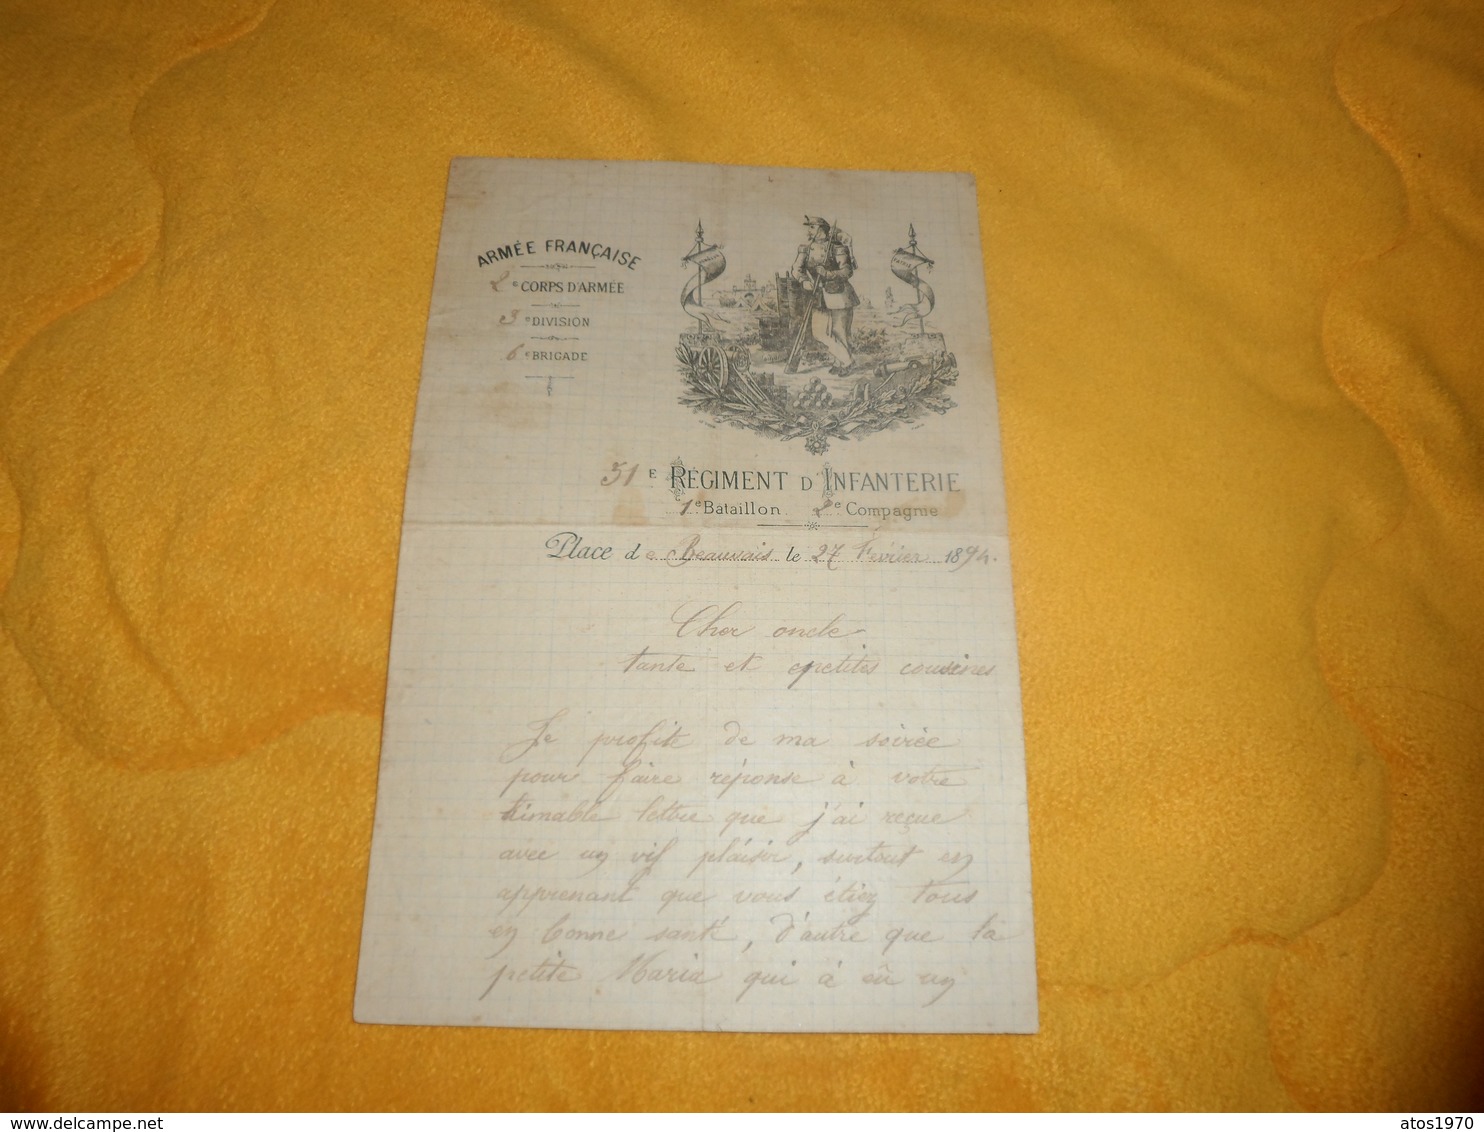 ARMÉE FRANÇAISE
2e CORPS D'ARMÉE
3e DIVISION
6e BRIGADE
PATRIE
51E RÉGIMENT D'INFANTERIE
1e Bataillon. 2e Compagnie
Place de Beauvais le 27 Fevrier 1894.
Cher oncle
tante et petites cousines
Je profite de ma soirée
pour faire réponse à votre
aimable lettre que j'ai reçue
avec un vif plaisir, surtout en
apprenant que vous étiez tous
en bonne santé, d'autre que la
petite Maria qui à eû un
delcampe.net
atos1970